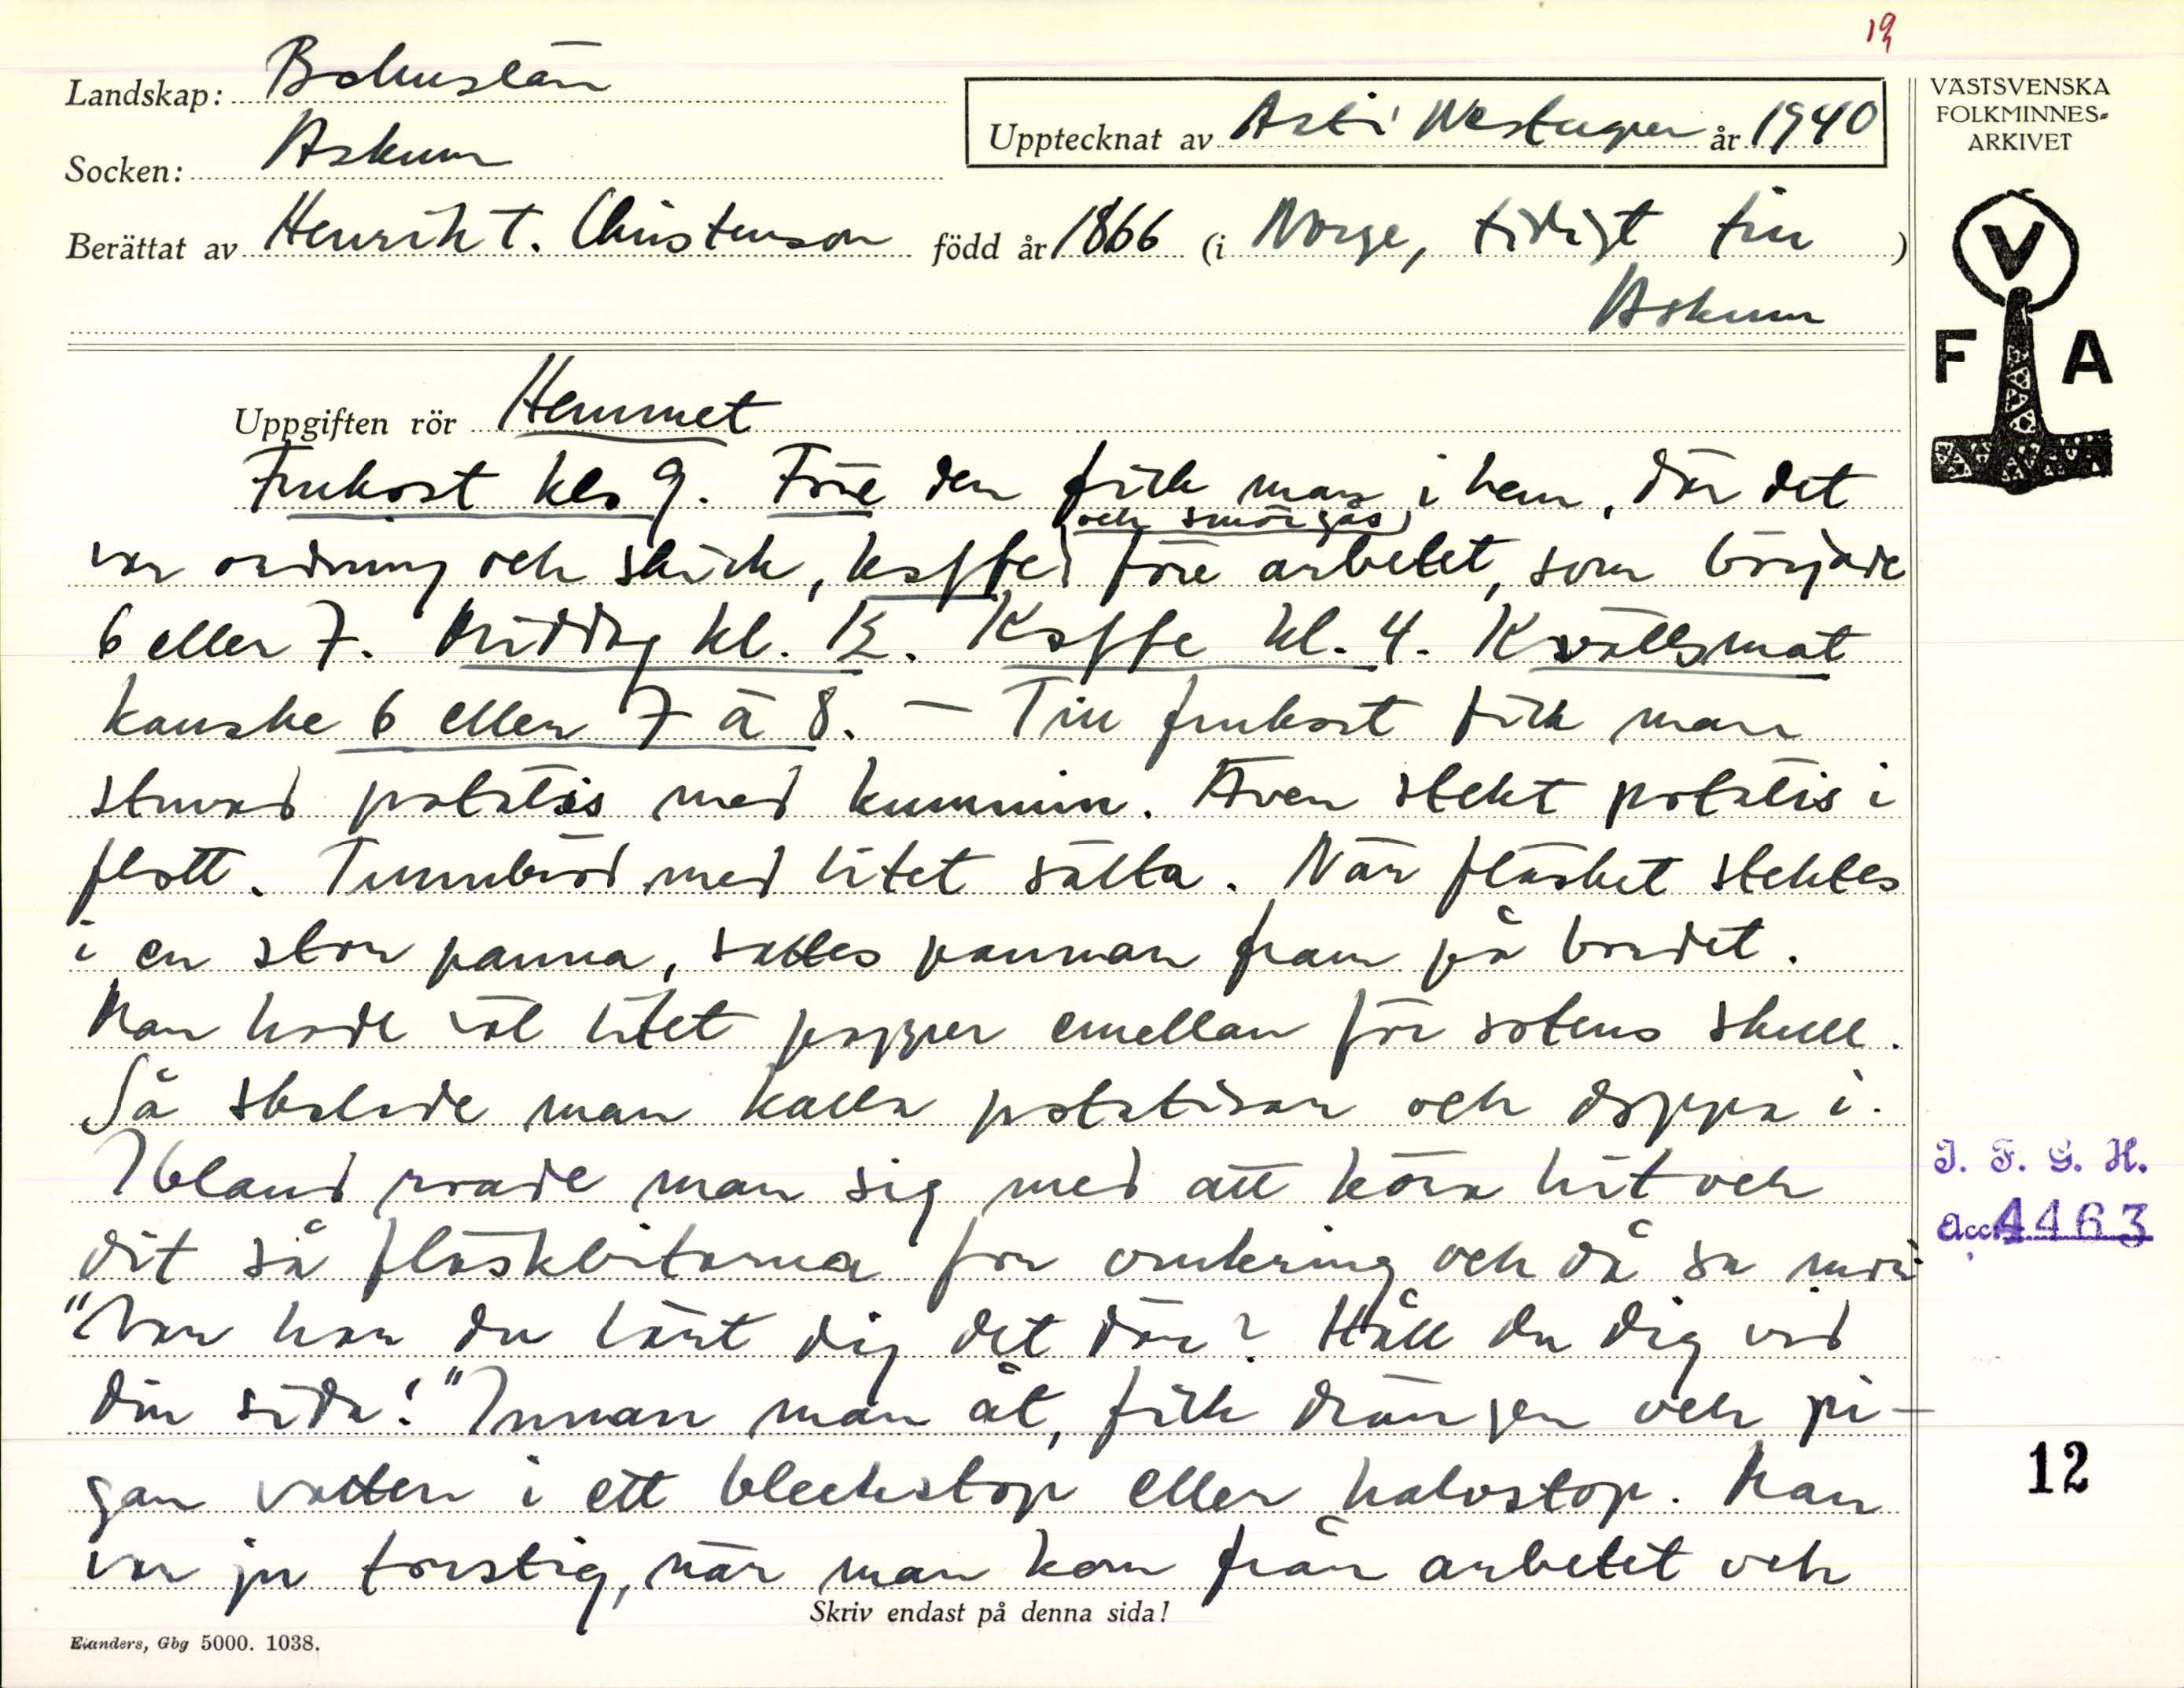 19
Landskap: Bohuslän
Socken: Askum
Upptecknat av Asti Westergren år 1940
Berättat av Henrik T. Christenson född år 1866 (i Norge, tidigt till)
Askum
VÄSTSVENSKA
FOLKMINNES-
ARKIVET
V
F A
Uppgiften rör Hemmet
Frukost kl. 9. Före den fick man i hem, där det
och smörgås
var ordning och skick, kaffe före arbetet, som började
6 eller 7. Middag kl. 12. Kaffe kl. 4. Kvällsmat
kanske 6 eller 7 à 8. – Till frukost fick man
stuvad potatis med kummin. Även stekt potatis i
flott. Tunnbröd med litet sälta. När fläsket stektes
i en stor panna, sattes pannan fram på bordet.
Man hade väl litet papper emellan för sotens skull.
Så skalade man kalla potatisar och doppa i.
Ibland roade man sig med att köra hit och
dit så fläskbitarna for omkring och då sa mor:
"Var har du lärt dig det där? Håll du dig vid
din sida!" Innan man åt, fick drängen och pi-
gan vatten i ett bleckstop eller halvstop. Man
var ju törstig, när man kom från arbetet och
I. F. G. H.
Acc. 4463
12
Skriv endast på denna sida!
Elanders, Gbg 5000. 1038.